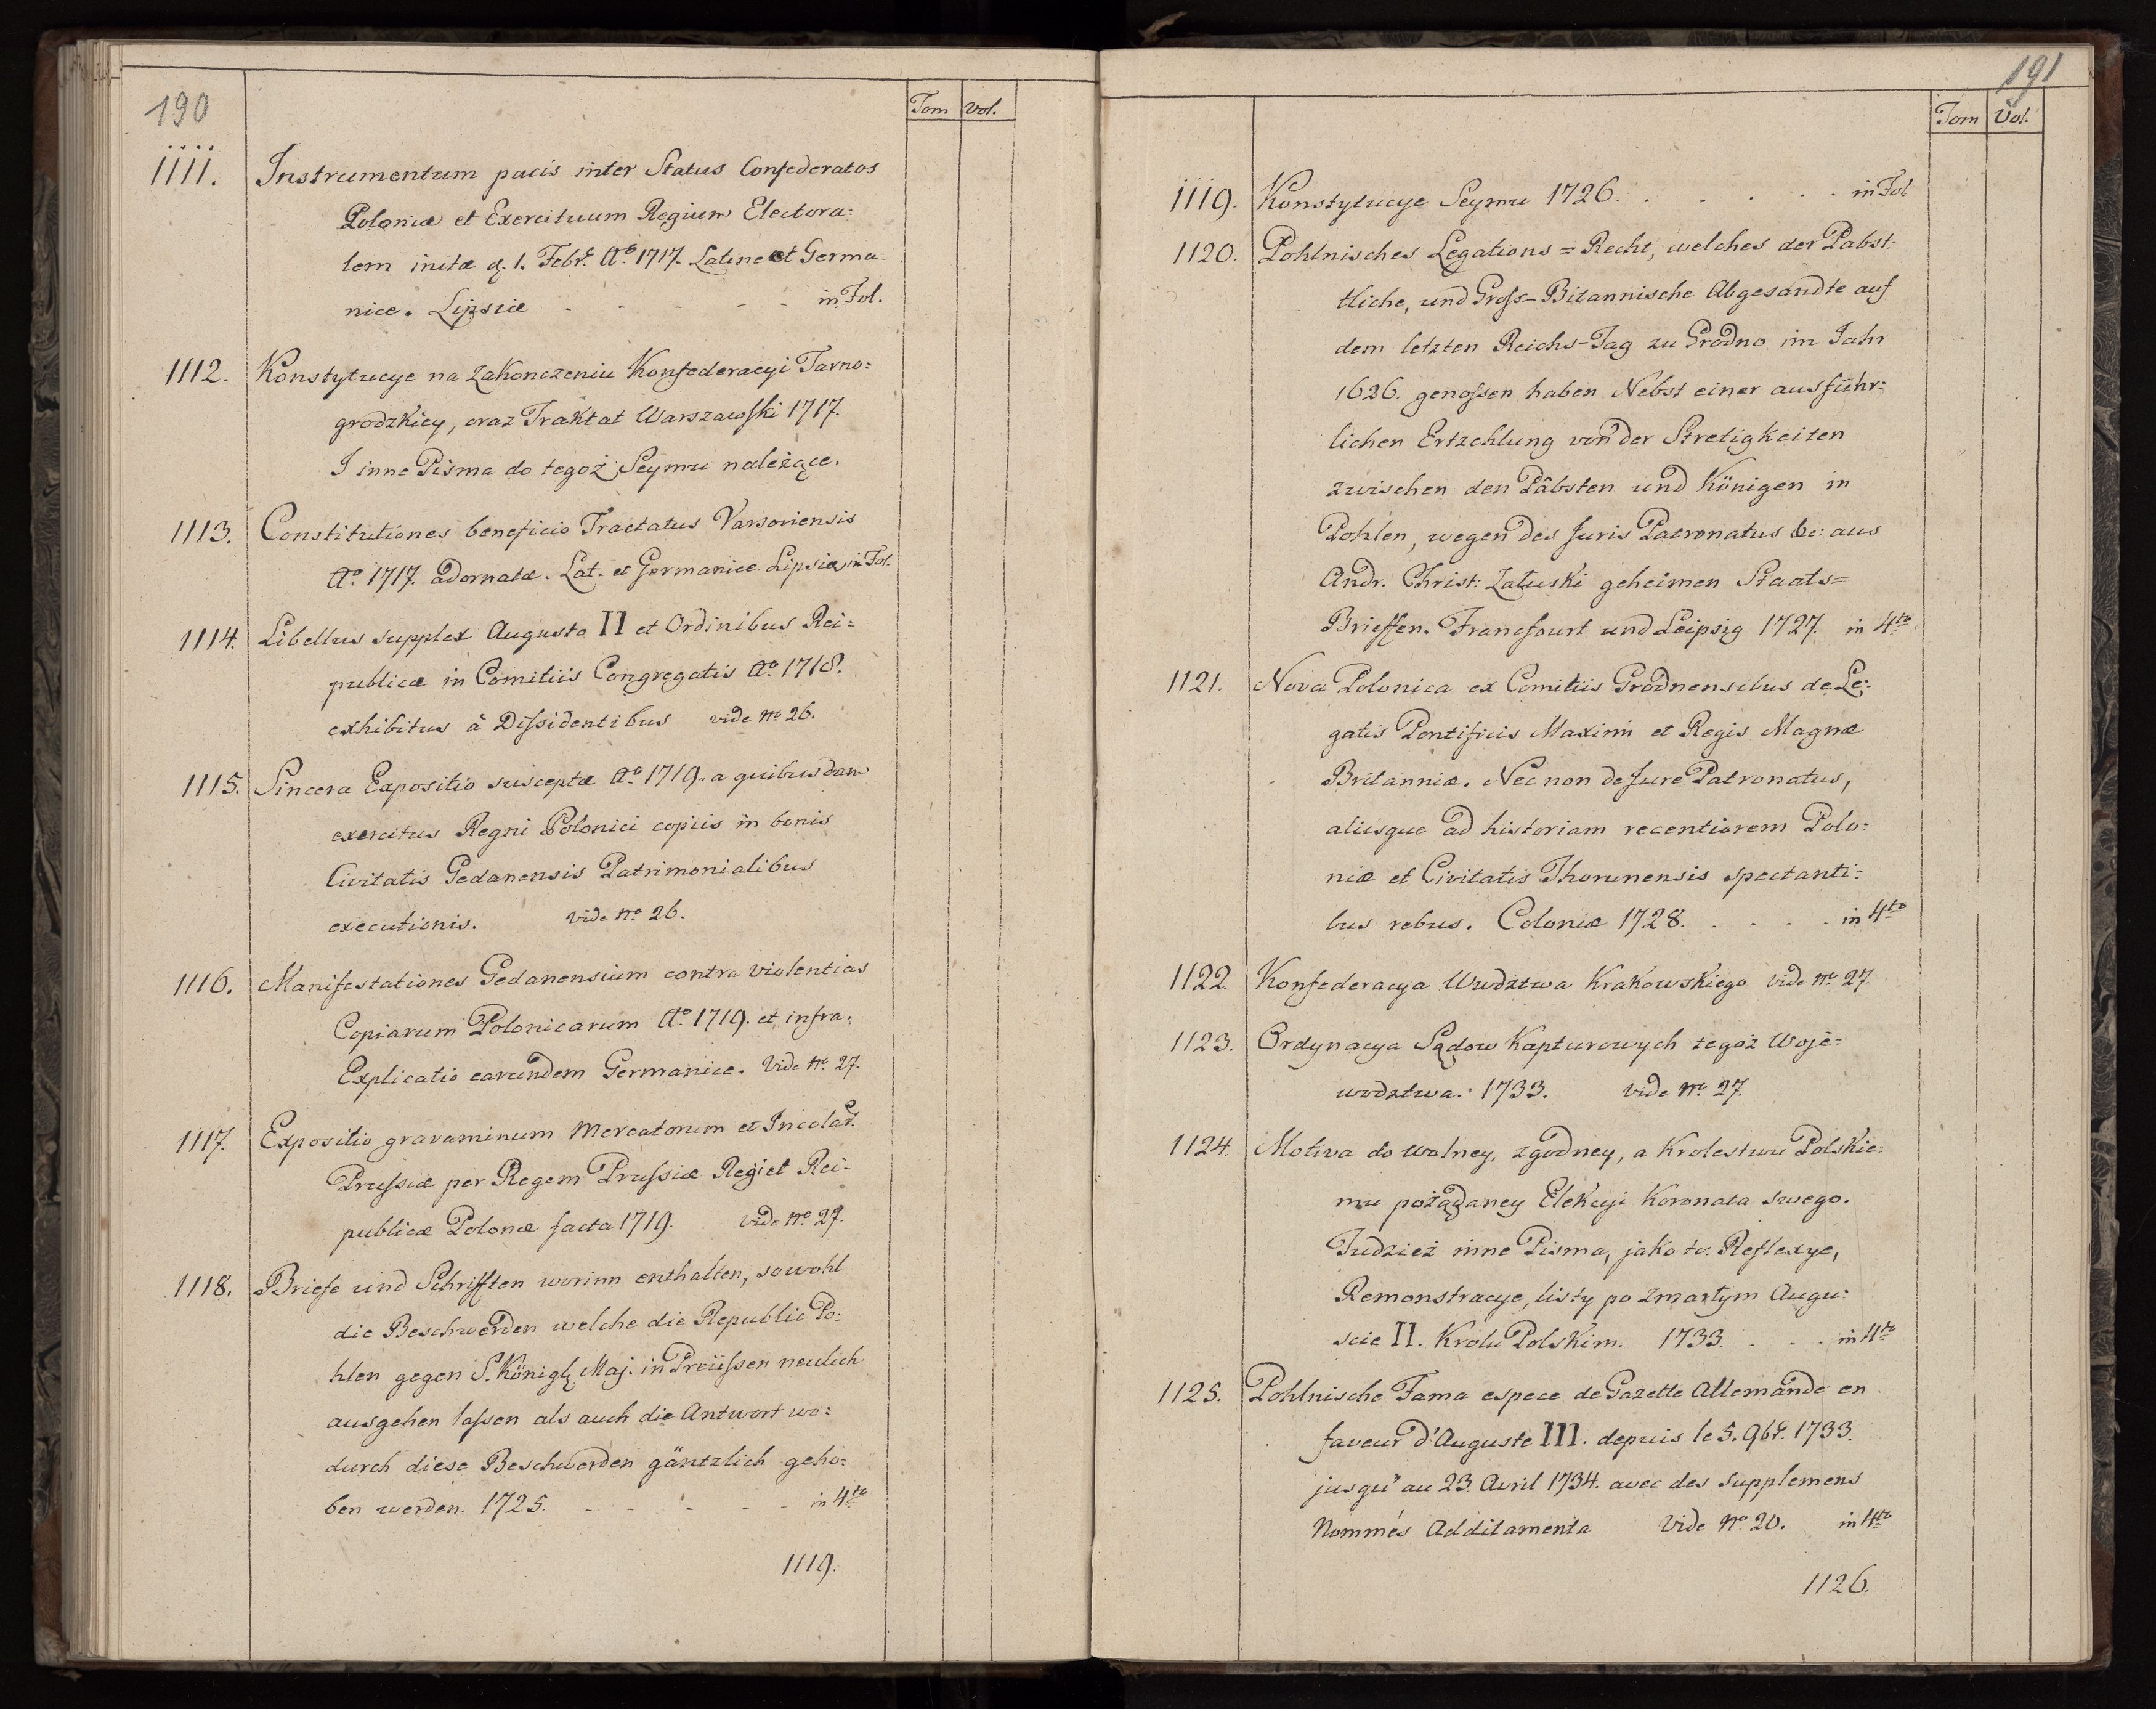 190
Tom Vol.
1111. Instrumentum pacis inter Status Confederatos
Poloniæ et Exercituum Regium Electora=
lem initæ d. 1. Febr. Aº 1717. Latine et Germa=
nice. Lipsiæ - - - - - in Fol.
1112. Konstytucye na zakonczeniu Konfederacyi Tarno=
grodzkiey, oraz Traktat Warszawski 1717.
I inne Pisma do tegoż Seymu należące.
1113. Constitutiones beneficio Tractatus Varsoviensis
Aº 1717. adornatæ. Lat. et Germanice. Lipsiæ in Fol.
1114. Libellus supplex Augusto II et Ordinibus Rei=
publicæ in Comitiis Congregatis Aº 1718.
exhibitus à Dissidentibus vide Nº 26.
1115. Sincera Expositio susceptæ Aº 1719. a quibusdam
exercitus Regni Polonici copiis in bonis
Civitatis Gedanensis Patrimonialibus
executionis. vide Nº 26.
1116. Manifestationes Gedanensium contra violentias
Copiarum Polonicarum Aº 1719. et infra:
Explicatio earundem Germanice. Vide Nº 27.
1117. Expositio gravaminum Mercatorum et Incolar.
Prussiæ per Regem Prussiæ Regi et Rei=
publicæ Polonæ facta 1719. vide Nº 27.
1118. Briefe und Schrifften worinn enthalten, sowohl
die Beschwerden welche die Republic Po=
hlen gegen S. Königl. Maj. in Preüssen neulich
ausgehen lassen als auch die Antwort wo=
durch diese Beschwerden gäntzlich geho=
ben werden. 1725. - - - - - in 4to
1119.
191
Tom Vol.
1119. Konstytucye Seymu 1726. . . . . in Fol
1120. Pohlnisches Legations=Recht, welches der Pabst=
tliche, und Gross-Bitannische Abgesandte auf
dem letzten Reichs-Tag zu Grodno im Jahr
1626. genossen haben Nebst einer ausführ=
lichen Ertzehlung von der Stretigkeiten
zwischen den Päbsten und Königen in
Pohlen, wegen des Juris Patronatus &c: aus
Andr. Christ: Załuski geheimen Staats=
Brieffen. Francfourt und Leipsig 1727. in 4to
1121. Nova Polonica ex Comitiis Grodnensibus de Le=
gatis Pontificis Maximi et Regis Magnæ
Britanniæ. Nec non de Jure Patronatus,
aliisque ad historiam recentiorem Polo=
niæ et Civitatis Thorunensis spectanti=
bus rebus. Coloniæ 1728. . . . . in 4to
1122. Konfederacya Wwdztwa Krakowskiego vide Nº 27.
1123. Ordynacya Sądow Kapturowych tegoż Woje=
wodztwa. 1733. vide Nº 27.
1124. Motiva do wolney, zgodney, a Krolestwu Polskie=
mu pożądaney Elekcyi Koronata swego.
Tudzież inne Pisma, jako to: Reflexye,
Remonstracye, listy po zmarłym Augu=
scie II. Krolu Polskim. 1733. . . . in 4to
1125. Pohlnische Fama espece de Gazette Allemande en
faveur d'Auguste III. depuis le 5. 9br. 1733.
jusqu'au 23. Avril 1734. avec des Supplemens
Nommés Additamenta Vide Nº 20. in 4to
1126.